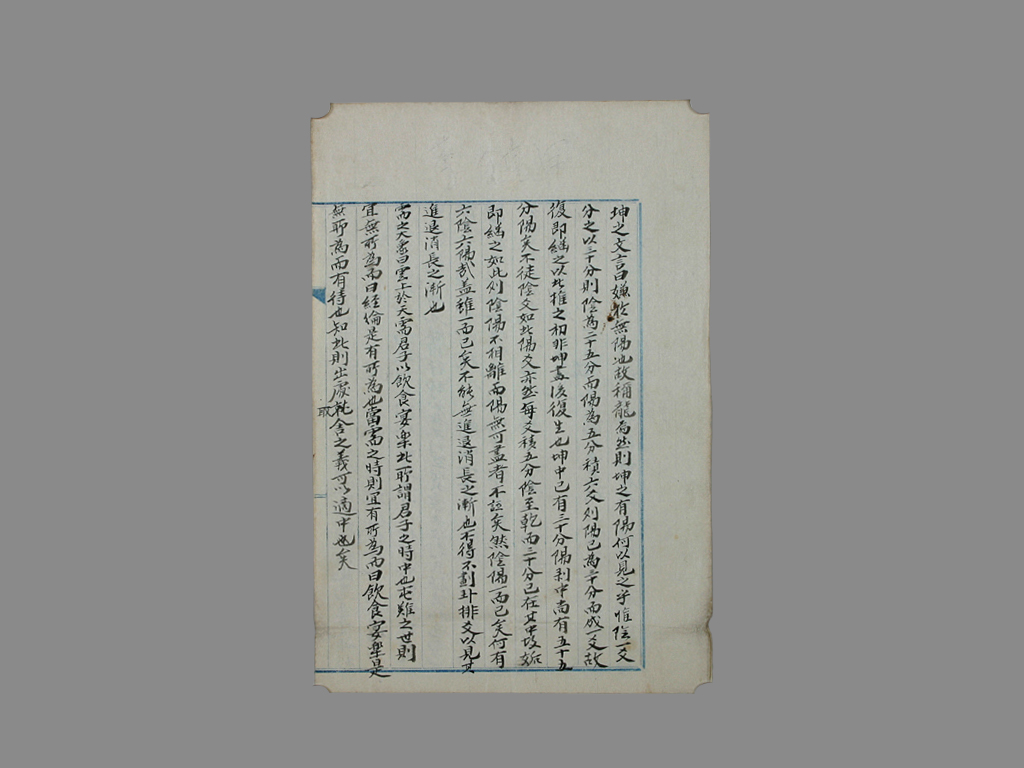 坤之文言曰嫌於無陽也故稱龍焉然則坤之有陽何以見之乎惟陰一爻
分之以三十分則陰為二十五分而陽為五分積六爻則陽已為三十分而成一爻故
復即繼之以此推之初非坤盡後復生也坤中已有三十分陽剥中尚有五十五
分陽矣不徒陰爻如此陽爻亦然每爻積五分陰至乾而三十分已在其中故姤
即繼之如此則陰陽不相離而陽無可盡者不誣矣然陰陽一而已矣何有
六陰六陽哉盖雖一而已矣不能無進退消長之漸也不得不劃卦排爻以見其
進退消長之漸也
需之大象曰雲上於天需君子以飲食宴樂此所謂君子之時中也屯難之世則
宜無所為而曰經倫是有所為也當需之時則宜有所為而曰飲食宴樂是
無所為而有待也知此則出處就舍之義可以適中也矣
取